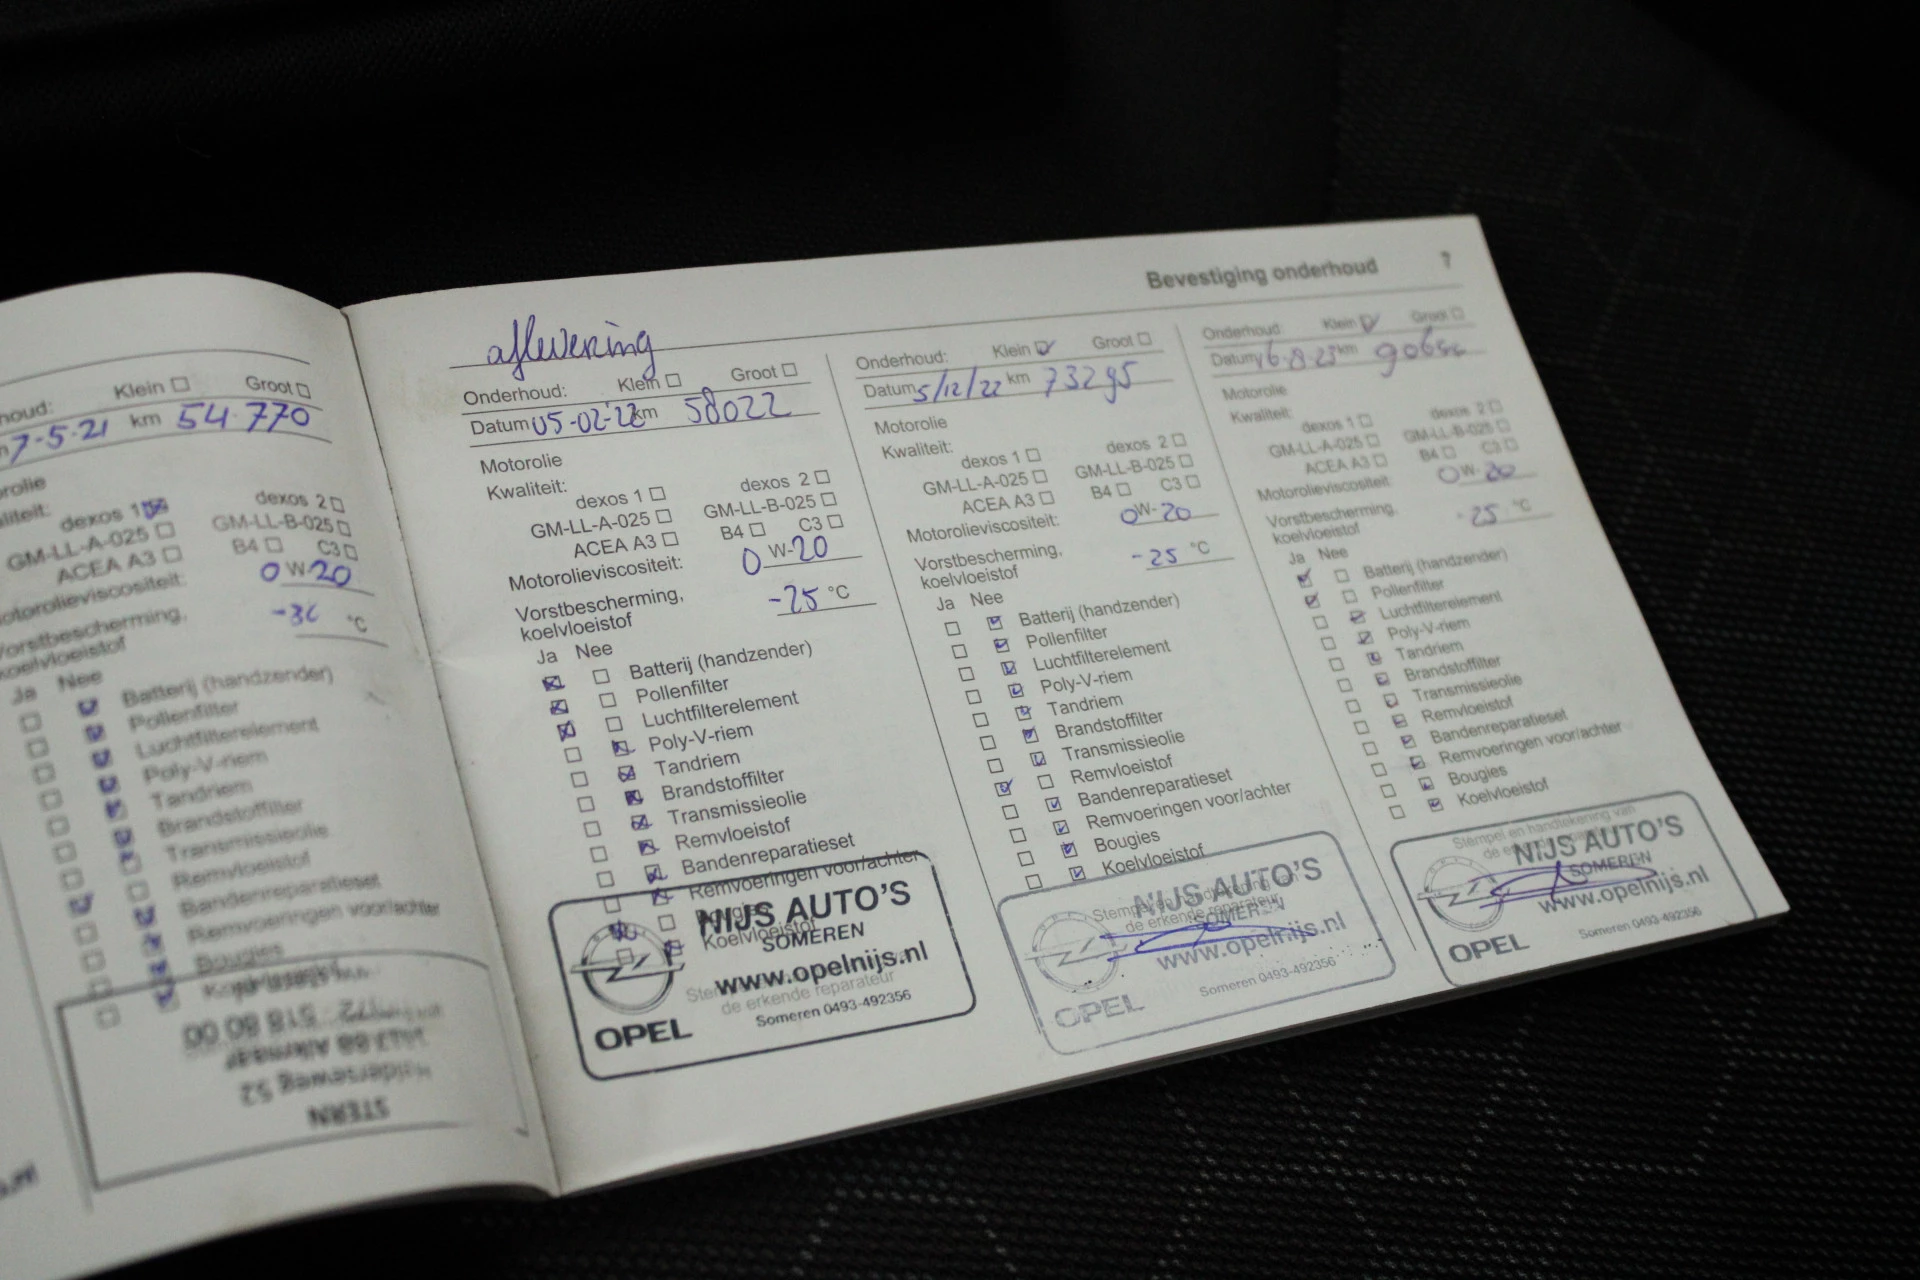 Bevestiging onderhoud 7
Klein Groot
7-5-21 km 54.770
dexos 1 dexos 2
GM-LL-A-025 GM-LL-B-025
ACEA A3 B4 C3
0 W-20
Vorstbescherming,
koelvloeistof
°C
Ja Nee
Batterij (handzender)
Pollenfilter
Luchtfilterelement
Poly-V-riem
Tandriem
Brandstoffilter
Transmissieolie
Remvloeistof
Bandenreparatieset
Remvoeringen voor/achter
Bougies
STERN
518 80 00
aflevering
Onderhoud: Klein Groot
Datum 05-02-22 km 58022
Motorolie
Kwaliteit:
dexos 1 dexos 2
GM-LL-A-025 GM-LL-B-025
ACEA A3 B4 C3
Motorolieviscositeit: 0 W-20
Vorstbescherming,
koelvloeistof -25 °C
Ja Nee
Batterij (handzender)
Pollenfilter
Luchtfilterelement
Poly-V-riem
Tandriem
Brandstoffilter
Transmissieolie
Remvloeistof
Bandenreparatieset
Remvoeringen voor/achter
Bougies
Koelvloeistof
NIJS AUTO'S
SOMEREN
www.opelnijs.nl
de erkende reparateur
Someren 0493-492356
OPEL
Onderhoud: Klein Groot
Datum 5/12/22 km 73295
Motorolie
Kwaliteit:
dexos 1 dexos 2
GM-LL-A-025 GM-LL-B-025
ACEA A3 B4 C3
Motorolieviscositeit: 0W-20
Vorstbescherming,
koelvloeistof -25 °C
Ja Nee
Batterij (handzender)
Pollenfilter
Luchtfilterelement
Poly-V-riem
Tandriem
Brandstoffilter
Transmissieolie
Remvloeistof
Bandenreparatieset
Remvoeringen voor/achter
Bougies
Koelvloeistof
NIJS AUTO'S
Stempel en handtekening van
de erkende reparateur
SOMEREN
www.opelnijs.nl
Someren 0493-492356
OPEL
Onderhoud: Klein Groot
Datum 16-8-23 km
Motorolie
Kwaliteit:
dexos 1 dexos 2
GM-LL-A-025 GM-LL-B-025
ACEA A3 B4 C3
Motorolieviscositeit: 0W-20
Vorstbescherming,
koelvloeistof -25 °C
Ja Nee
Batterij (handzender)
Pollenfilter
Luchtfilterelement
Poly-V-riem
Tandriem
Brandstoffilter
Transmissieolie
Remvloeistof
Bandenreparatieset
Remvoeringen voor/achter
Bougies
Koelvloeistof
Stempel en handtekening van
de erkende reparateur
NIJS AUTO'S
SOMEREN
www.opelnijs.nl
Someren 0493-492356
OPEL